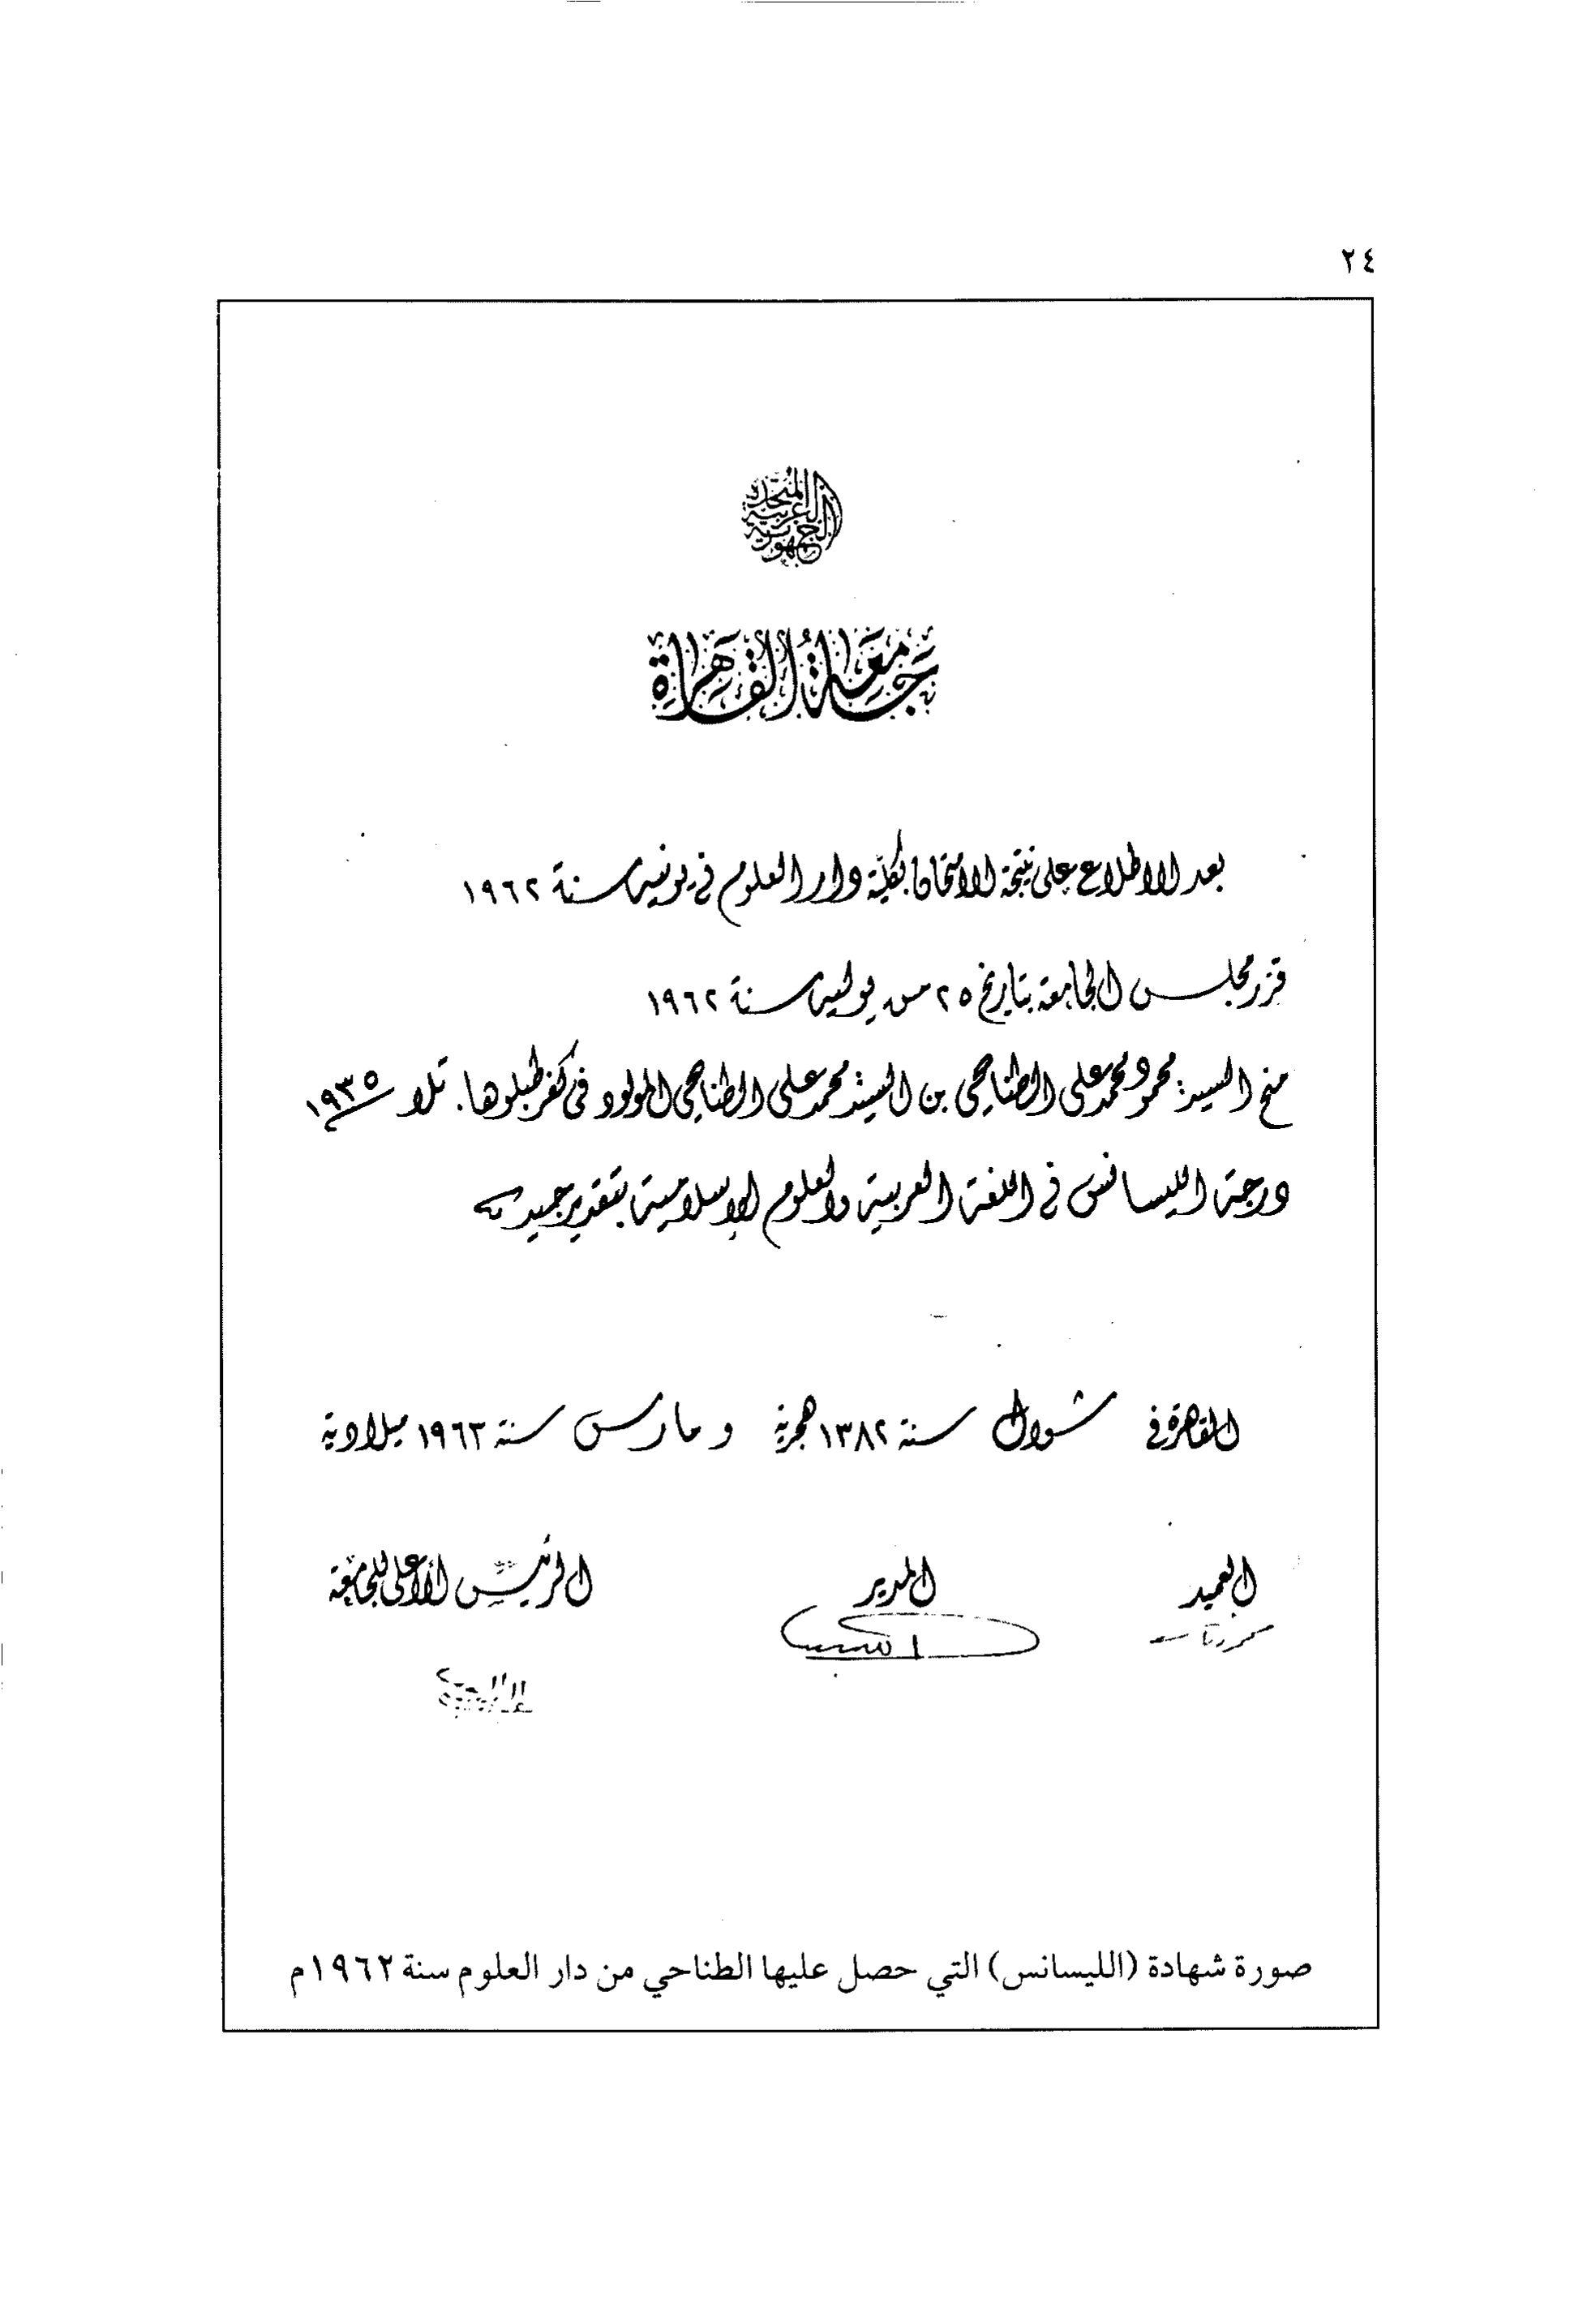 ٢٤
الجمهورية العربية المتحدة
جامعة القاهرة
بعد الاطلاع على نتيجة الامتحان بكلية دار العلوم في يونيه سنة ١٩٦٢
قرر مجلس الجامعة بتاريخ ٢٥ من يوليه سنة ١٩٦٢
منح السيد: محمود محمد على الطناحى بن السيد: محمد على الطناحى المولود فى كفر طبلوها. تلا ١٩٣٥
درجة الليسانس في اللغة العربية والعلوم الإسلامية بتقدير جيد
القاهرة في شوال سنة ١٣٨٢ هجرية و مارس سنة ١٩٦٣ ميلادية
العميد المدير الرئيس الأعلى للجامعة
صورة شهادة (الليسانس) التي حصل عليها الطناحي من دار العلوم سنة ١٩٦٢م